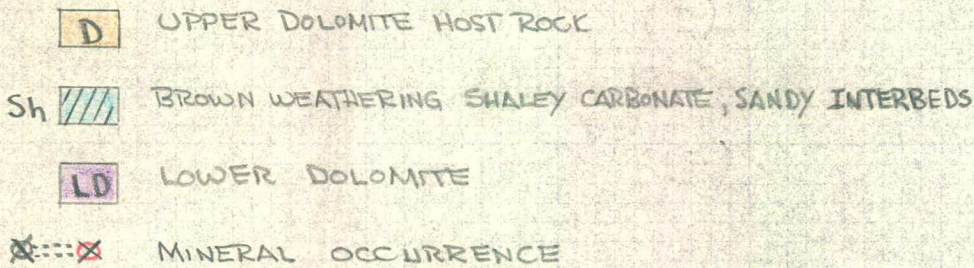 D UPPER DOLOMITE HOST ROCK
Sh BROWN WEATHERING SHALEY CARBONATE, SANDY INTERBEDS
LD LOWER DOLOMITE
MINERAL OCCURRENCE